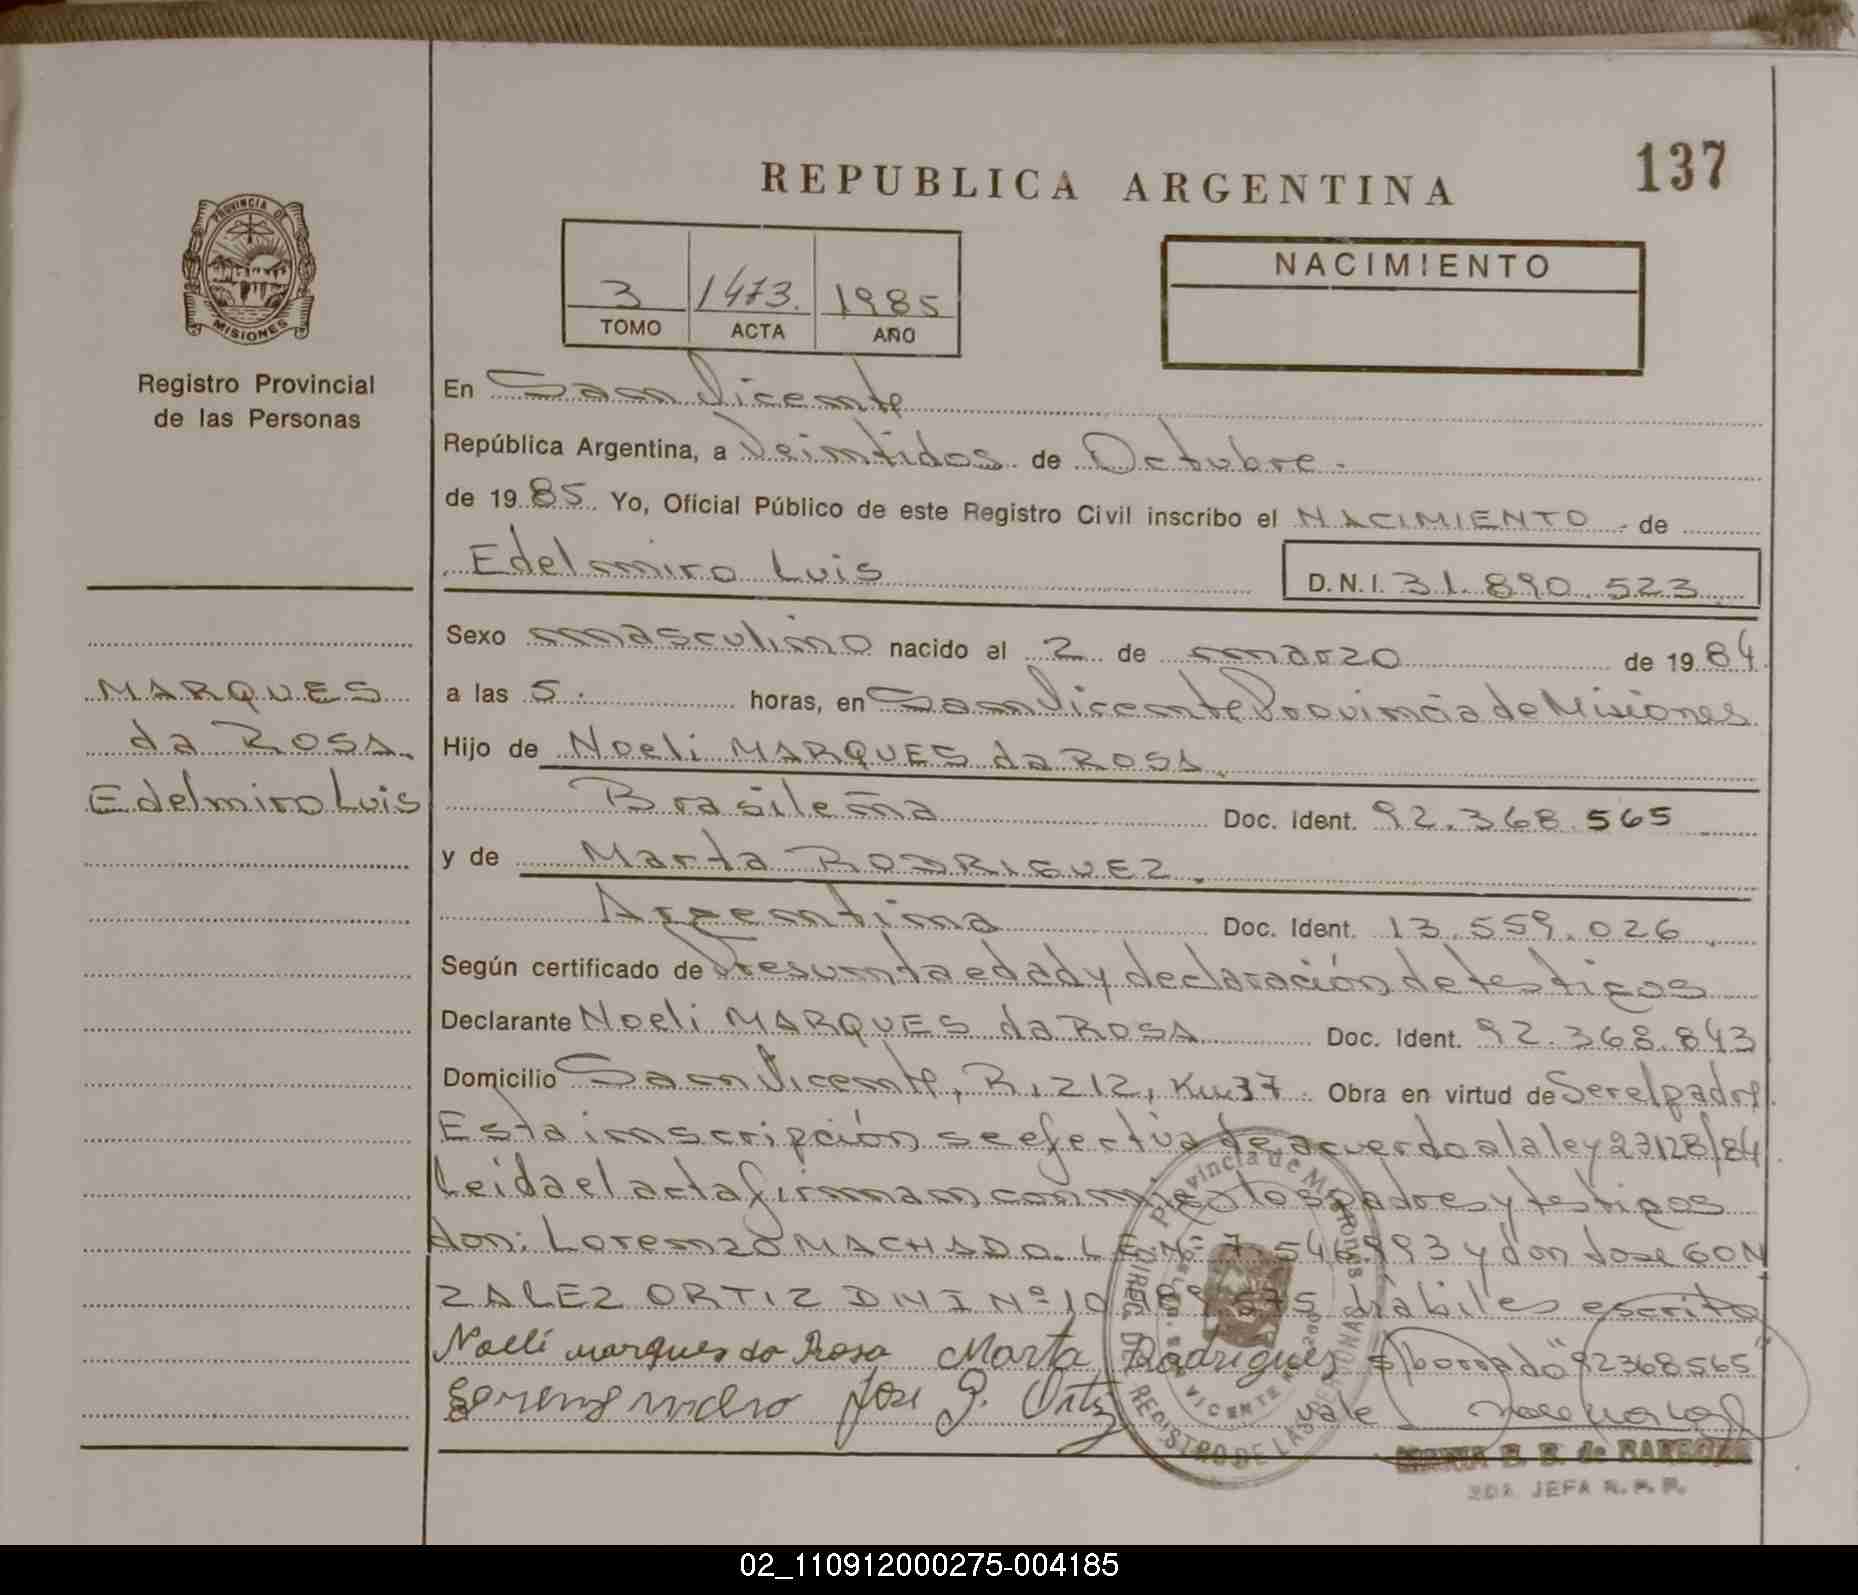 137
REPUBLICA ARGENTINA
PROVINCIA DE
MISIONES
Registro Provincial
de las Personas
3 1473. 1985
TOMO ACTA AÑO
NACIMIENTO
En San Vicente
República Argentina, a Veintidos de Octubre.
de 1985. Yo, Oficial Público de este Registro Civil inscribo el NACIMIENTO - de
Edelmiro Luis D.N.I. 31.890.523
MARQUES
da ROSA.
Edelmiro Luis
Sexo masculino nacido el 2 de marzo de 1984
a las 5. horas, en San Vicente Provincia de Misiones
Hijo de Noeli MARQUES da ROSA.
Brasileña Doc. Ident. 92.368.565
y de Marta RODRIGUEZ.
Argentina Doc. Ident. 13.559.026
Según certificado de Presunta edad y declaración de testigos
Declarante Noeli MARQUES da ROSA Doc. Ident. 92.368.843
Domicilio San Vicente, R.212, Km 37. Obra en virtud de Ser el padre.
Esta inscripción se efectúa de acuerdo a la ley 23128/84.
Leida el acta firman conmigo los padres y testigos
don: Lorenzo MACHADO. LE.Nº 7.546.993 y don Jose GON
ZALEZ ORTIZ DNI Nº 10. hábiles escrito
Noeli marques da Rosa Marta Rodriguez s/borrado "92368565"
Jose G. Ortiz vale
MARIA B. B. de BARBOZA
2DA. JEFA R.P.P.
Provincia de Misiones
REGISTRO DE LAS PERSONAS
02_110912000275-004185